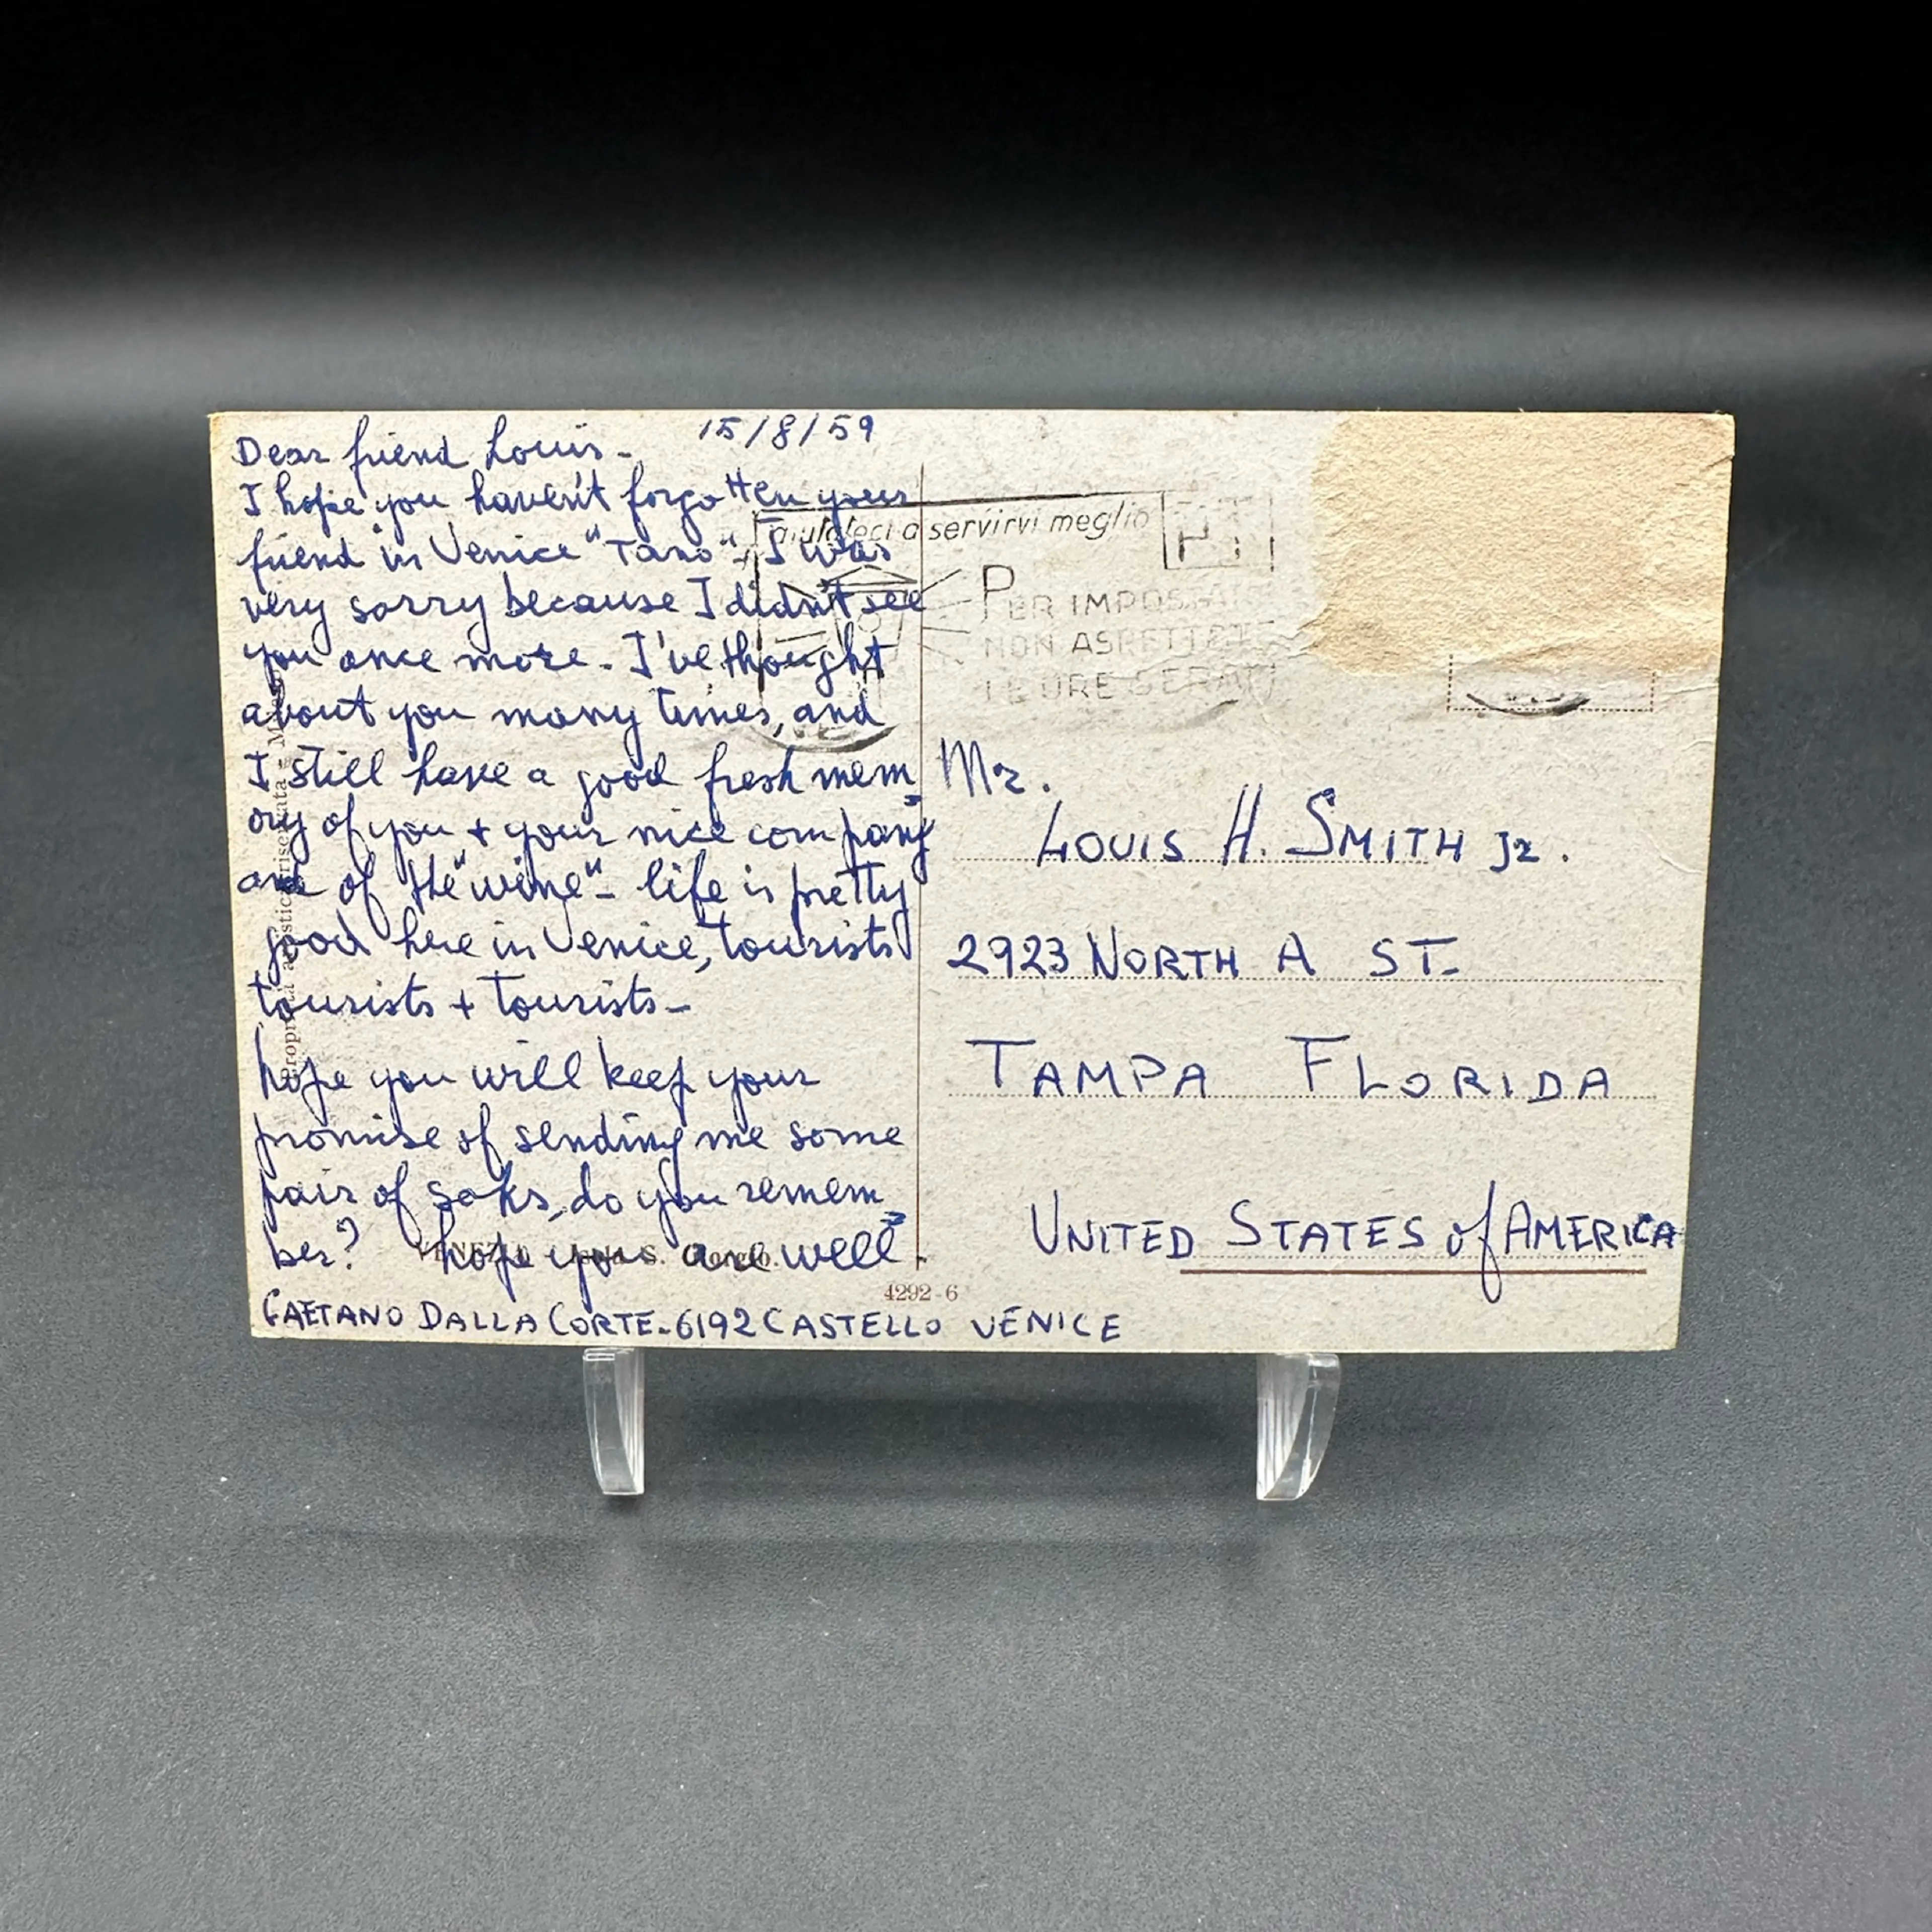 15/8/59
Dear friend Louis-
I hope you haven't forgotten your
friend in Venice "Tano"- I was
very sorry because I didn't see
you once more. I've thought
about you many times, and
I still have a good fresh mem
ory of you + your nice company
and of the "wine"- life is pretty
good here in Venice, tourists
tourists + tourists-
hope you will keep your
promise of sending me some
pair of soks, do you remem
ber? hope you are well.
GAETANO DALLA CORTE-6192 CASTELLO VENICE
aiutateci a servirvi meglio
PT
PER IMPOSTARE
NON ASPETTATE
LE ORE SERALI
Mr.
LOUIS H. SMITH Jr.
2923 NORTH A ST.
TAMPA FLORIDA
UNITED STATES of AMERICA
VENEZIA - Isola S. Giorgio.
4292-6
Proprietà artistica riservata -